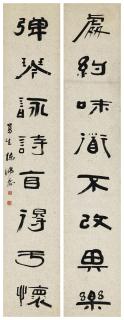 處約味道不改其樂
彈琴詠詩自得于懷
曼生陳鴻壽